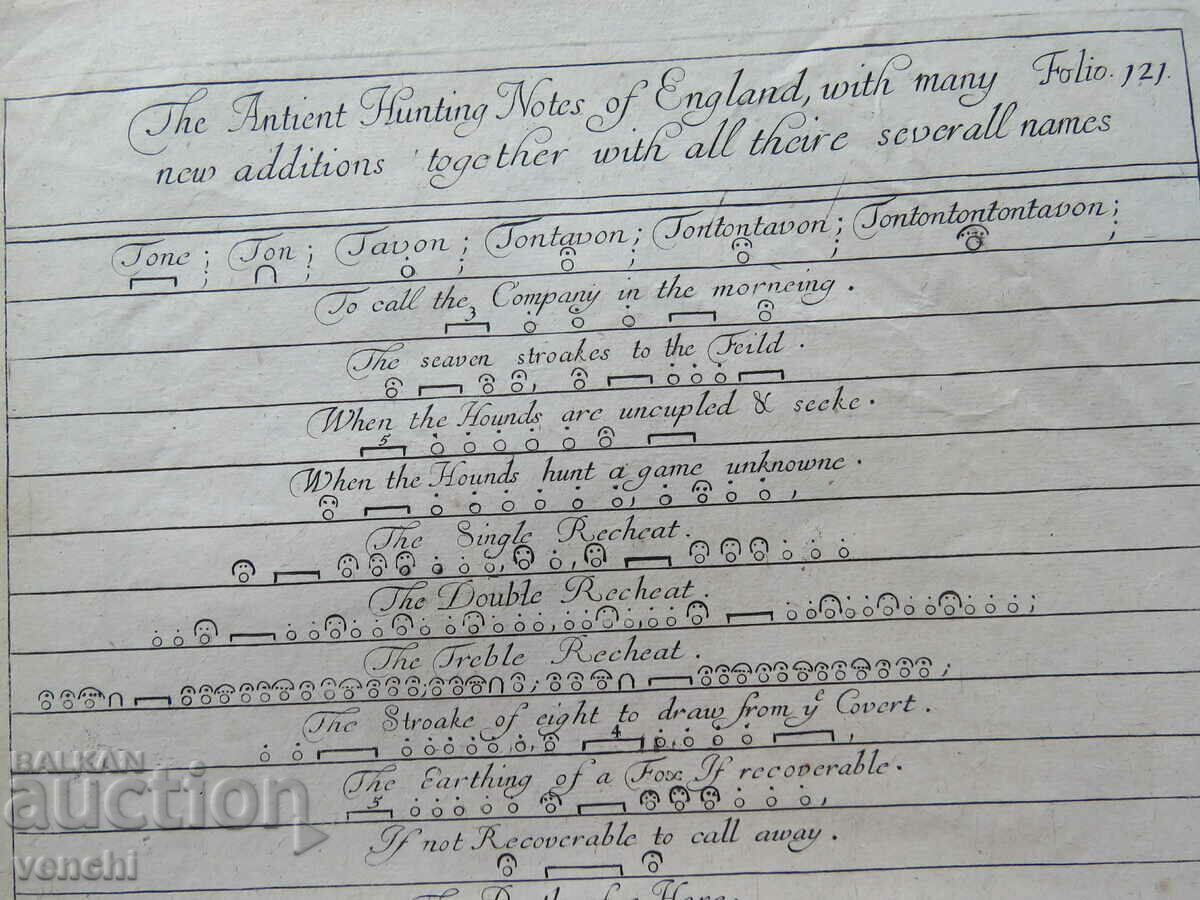 The Antient Hunting Notes of England, with many Folio. 121.
new additions together with all theire severall names
Tone; Ton; Tavon; Tontavon; Tontontavon; Tontontontontavon;
To call the Company in the morneing.
3
The seaven stroakes to the Feild.
When the Hounds are uncupled & seeke.
5
When the Hounds hunt a game unknowne.
The Single Recheat.
The Double Recheat.
The Treble Recheat.
The Stroake of eight to draw from yᵉ Covert.
4
The Earthing of a Fox If recoverable.
5
If not Recoverable to call away.
BALKAN
auction
venchi